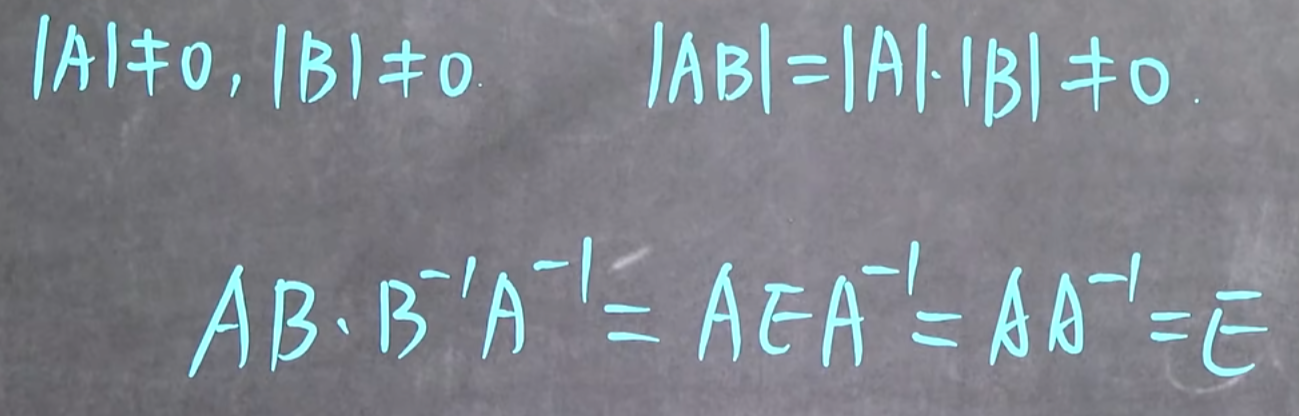 |A|≠0, |B|≠0. |AB|=|A|·|B|≠0.
AB·B⁻¹A⁻¹=AEA⁻¹=AA⁻¹=E